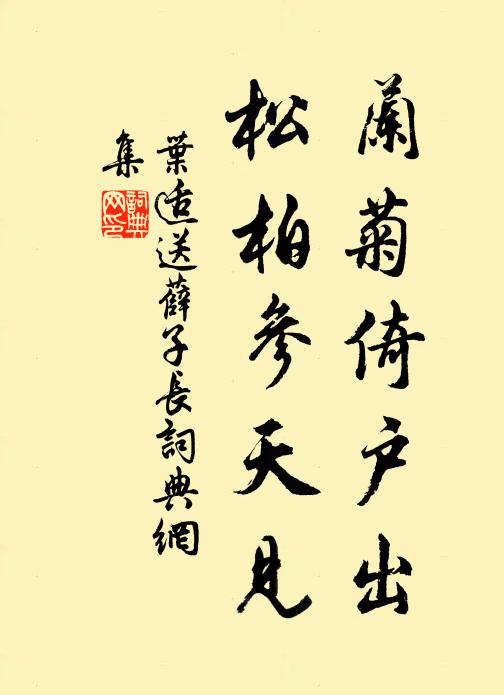 蘭菊倚户出
松柏參天見
葉适送薛子長詞典網
集
詞典網印